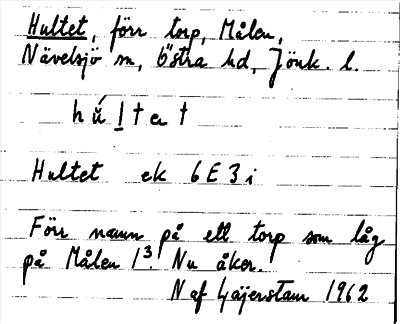 Hultet, förr torp, Målen,
Nävelsjö sn, Östra hd, Jönk. l.
hú̵ltet
Hultet ek 6E3i
Förr namn på ett torp som låg
på Målen 1³. Nu åker.
N af Geijerstam 1962